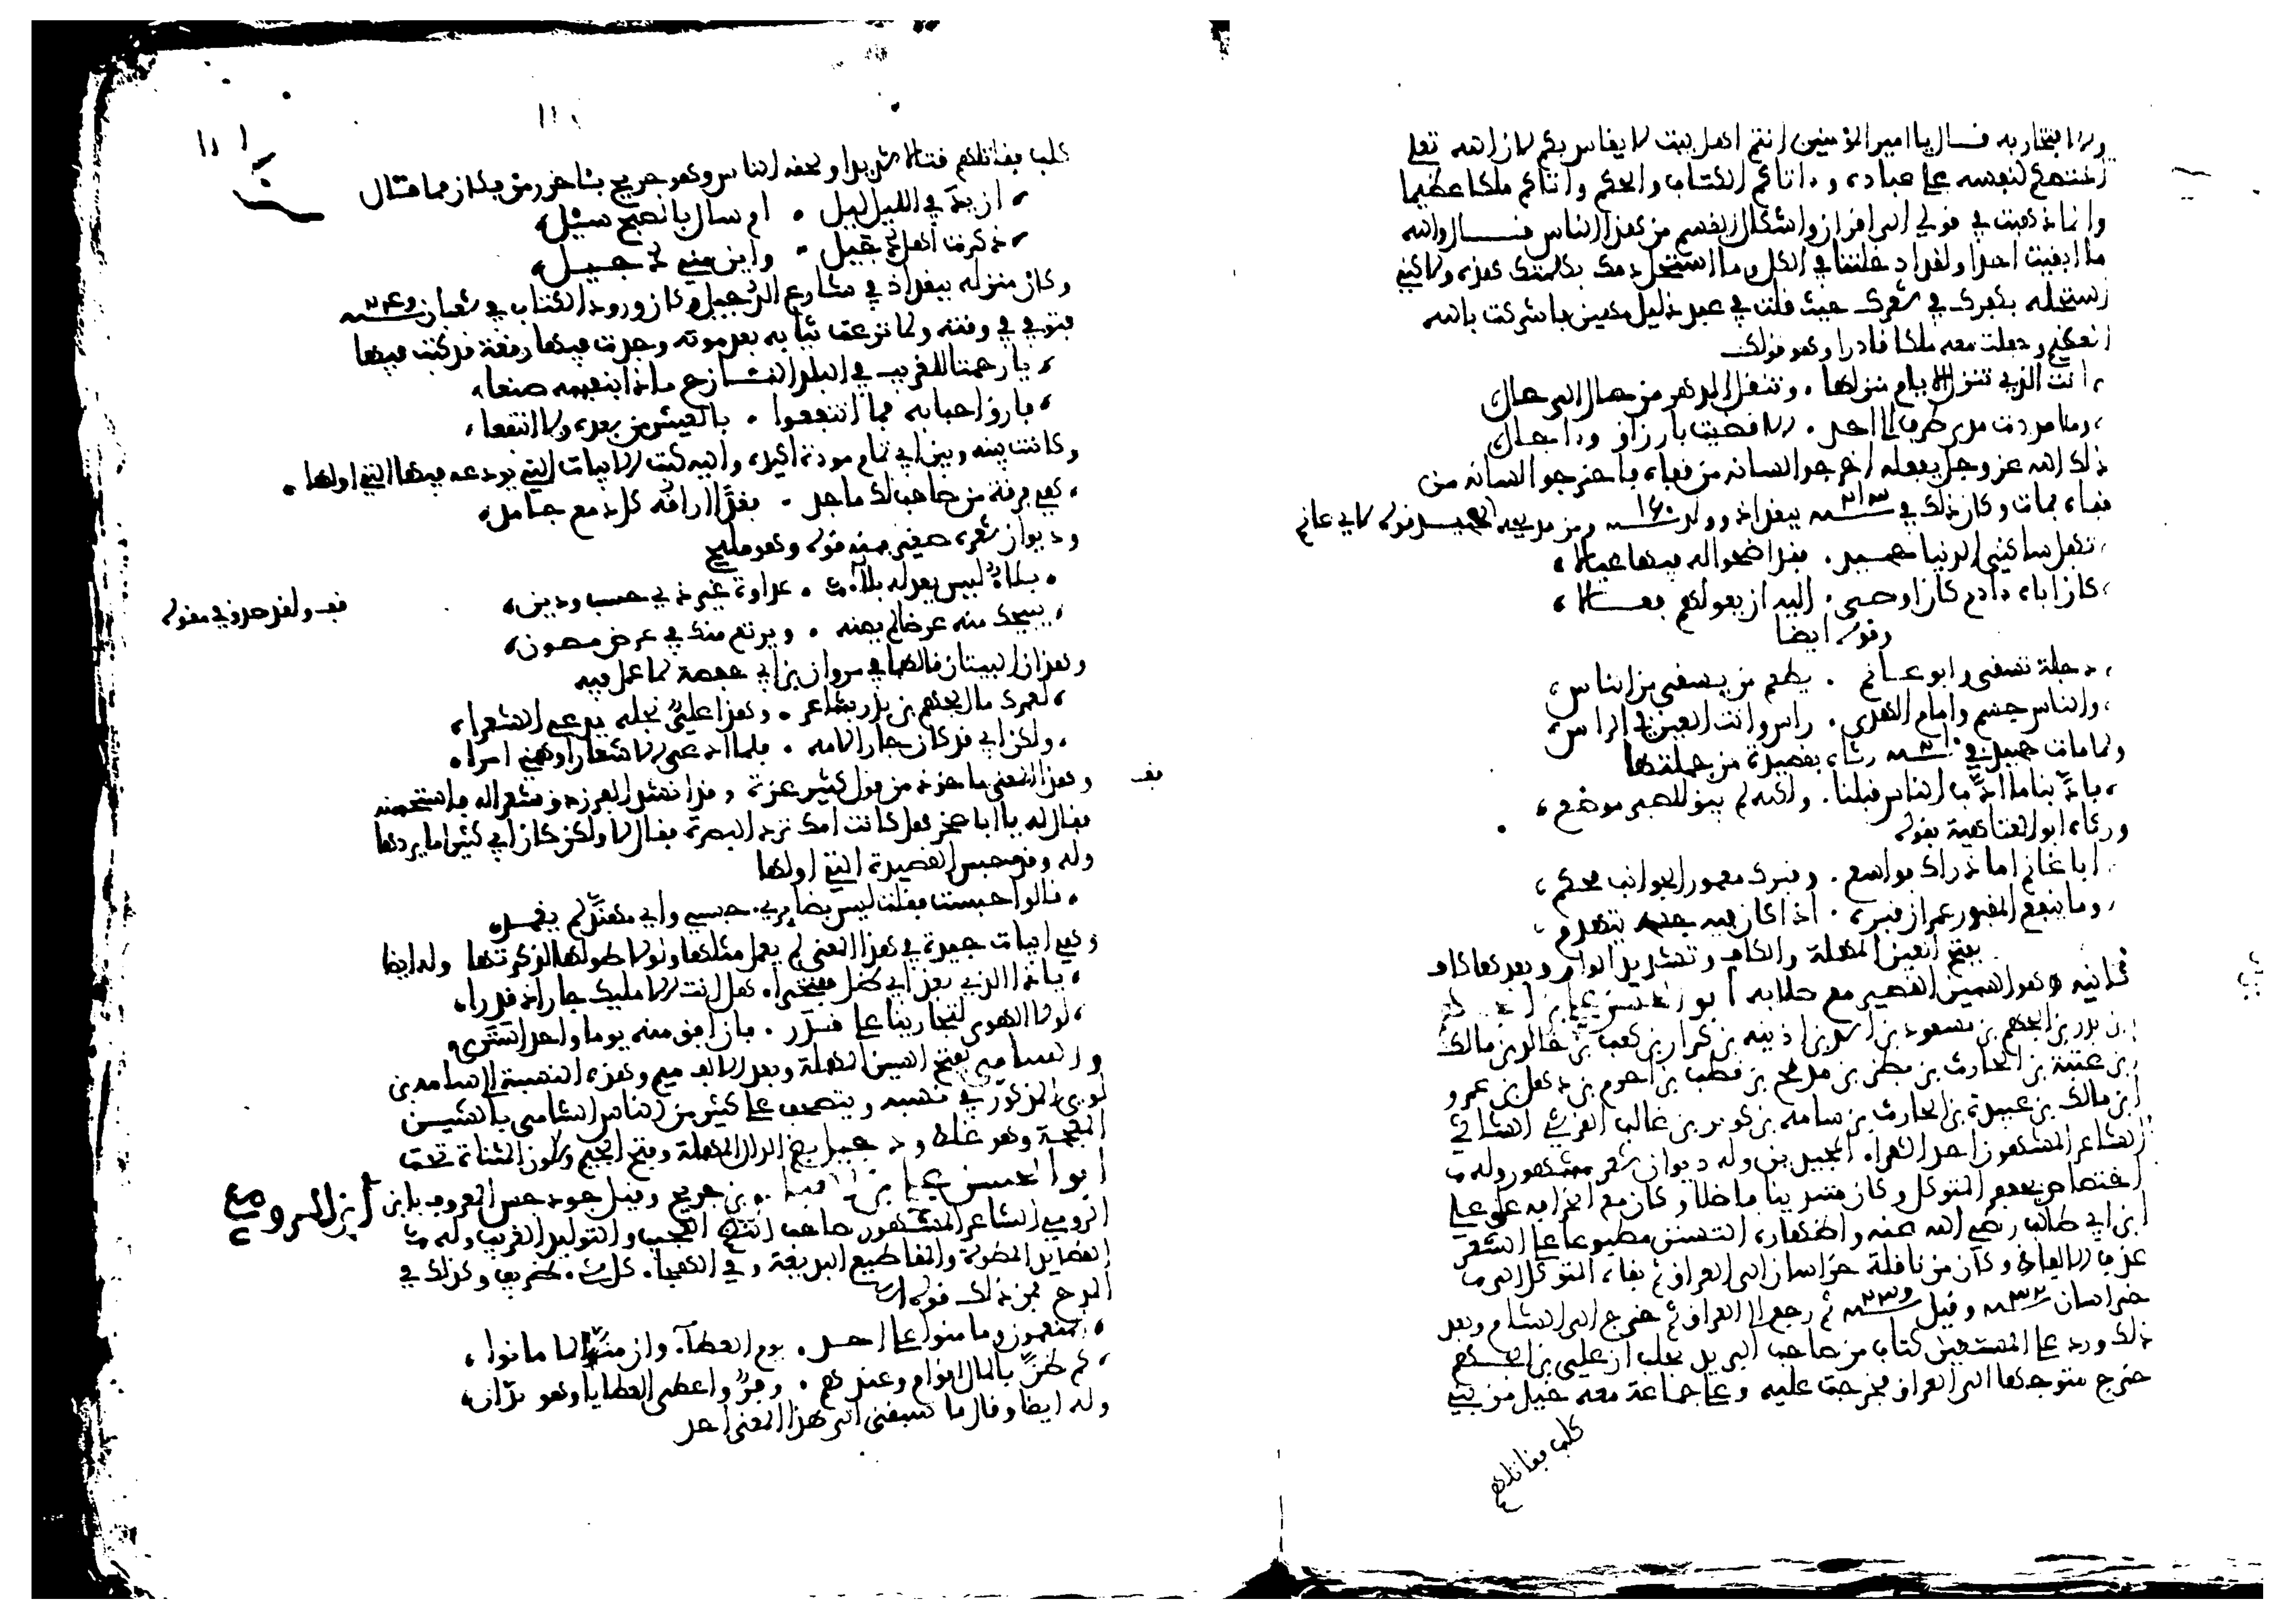 ولا يختار به فقال يا امير المؤمنين انتم اهل بيت لا يقاس بكم لان الله تعلى
اختصكم لنفسه على عباده وءاتاكم الكتاب والحكم وءاتاكم ملكا عظيما
وانما ذهبت في قولي الى اقران واشكال القسم من هذا الناس فقال والله
ما ابقيت احدا ولقد ادخلتنا في الكل وما استحل دمك بكلمتك هذه ولكني
استحله بكفرك في شعرك حيث قلت في عبد ذليل مهين باشركت بالله
العظيم وجعلت معه ملكا قادرا وهو قولك
انت الذي تنزل الايام منزلها . وتنقل الدهر من حال الى حال
وما مددت مدى طرف الى احد . الا قضيت بارزاق وءاجال
ذلك الله عز وجل يفعله اخرجوا لسانه من قفاه فاخرجوا لسانه من
قفاه فمات وكان ذلك في سنة ٢١٣ ببغداد وولد سنة ١٦٠ ومن مديحه قوله لابي غانم
تكفل ساكني الدنيا حميد . فقد اضحوا له فيها عيالا
كان اباه ءادم كان اوصى . اليه ان يعولهم فعالا
وقوله ايضا
دجلة تسقي وابو غانم . يطعم من يسقي من الناس
والناس جسم وامام الهدى . راس وانت العين في الراس
ولما مات حميد في سنة ٢١٠ رثاه بقصيدة من جملتها
فادبنا ما ادب الناس قبلنا . ولكنه لم يبق للصبر موضع
ورثاه ابو العتاهية بقوله
ابا غانم اما ذراك فواسع . وقبرك معمور الجوانب محكم
وما ينفع المقبور عمران قبره . اذا كان فيه جسمه يتهدم
بفتح العين المهملة والكاف وتشديد الواو وبعدها كاف
ثانيه وهو السمين القصير مع صلابه ابو الحسن علي بن الجهم
بن بدر بن الجهم بن مسعود بن اسد بن اذينه بن كرار بن كعب بن خالد بن مالك
بن عتبة بن الحارث بن قطن بن مدلج بن قطب بن احرم بن ذهل بن عمرو
ابن مالك بن عبيدة بن الحارث بن سامه بن لوي بن غالب القرشي الشامي
الشاعر المشهور احد الشعراء المجيدين وله ديوان شعر مشهور وله
اختصاص بجعفر المتوكل وكان متدينا فاضلا وكان مع انحرافه عن علي
ابن ابي طالب رضي الله عنه واظهاره التسنن مطبوعا على الشعر
عذب الالفاظ وكان من ناقلة خراسان الى العراق ثم نفاه المتوكل الى
خراسان سنة ٢٣٢ وقيل سنة ٢٣٩ ثم رجع الى العراق ثم خرج الى الشام وبعد
ذلك ورد على المستعين كتاب من صاحب البريد بحلب ان علي بن الجهم
خرج متوجها الى العراق فخرجت عليه وعلى جماعة معه خيل من بني
كلب فقاتلهم
كلب فقاتلهم قتالا شديدا ولحقه الناس وهو جريح بئاخر رمق فكان مما قال
ازيد في الليل ليل . ام سال بالصبح سيل
ذكرت اهل دجيل . واين مني دجيل
وكان منزله ببغداد في شارع الدجيل وكان ورود الكتاب في شعبان سنة ٢٤٩
فتوفي في وقته ولما نزعت ثيابه بعد موته وجدت فيها رقعة قد كتب فيها
يا رحمتا للغريب في البلد النازح ماذا بنفسه صنعا
فارق احبابه فما انتفعوا . بالعيش من بعده ولا انتفعا
وكانت بينه وبين ابي تمام مودة اكيدة واليه كتب الابيات التي يودعه فيها التي اولها
هي فرقة من صاحب لك ماجد . فغدا اراقة كل دمع جامد
وديوان شعره صغير فمنه قوله وهو مليح
بلاء ليس يعدله بلاء . عداوة غير ذي حسب ودين
يبيحك منه عرضا لم يصنه . ويرتع منك في عرض مصون
قف ولقد صدق في مقوله
وهذان البيتان قالهما في مروان بن ابي حفصة لما عمل فيه
لعمرك ما الجهم بن بدر بشاعر . وهذا علي نجله يدعي الشعراء
ولكن ابي قد كان جارا لامه . فلما ادعى الاشعار اوهمني امرا
قف
وهذا المعنى ماخوذ من قول كثير عزة وقد انشد الفرزدق شعرا له فاستحسنه
فقال له يا ابا صخر هل كانت امك ترد البصرة فقال لا ولكن كان ابي كثيرا ما يردها
وله وقد حبس القصيدة التي اولها
قالوا حبست فقلت ليس بضايري . حبسي واي مهند لم يغمد
وهي ابيات جيدة في هذا المعنى لم يعمل مثلها ولولا طولها لذكرتها وله ايضا
يا ذا الذي بعذابي ظل مفتخرا . هل انت الا مليك جار اذ قدرا
لولا الهوى لتجارينا على قدر . فان افق منه يوما واحدا سترى
والسامي بفتح السين المهملة وبعد الالف ميم وهذه النسبة الى سامة بن
لوي المذكور في نسبه ويتصحف على كثير من الناس الشامي بالشين
المعجمة وهو غلط ودجيل بضم الدال المهملة وفتح الجيم وسكون المثناة تحت
ابو الحسن علي بن العباس بن جريح وقيل جورجس المعروف بابن ابن الرومي
الرومي الشاعر المشهور صاحب النظم العجيب والتوليد الغريب وله
القصايد المطولة والمقاطيع البديعة وفي الهجاء كل شيء ظريف وكذلك في
المدح فمن ذلك قوله
المنعمون وما منوا على احد . يوم العطاء . وان منوا لما مانوا
كم ظن بالمال اقوام وعندهم . وفر واعطى العطايا وهو يدان
وله ايضا وقال ما سبقني الى هذا المعنى احد